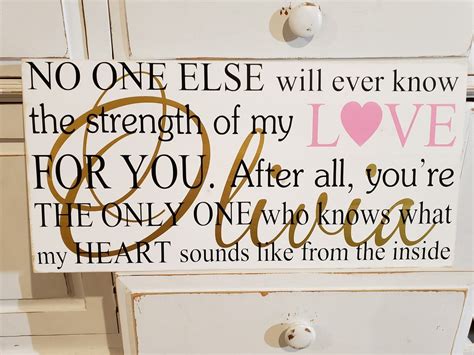 NO ONE ELSE will ever know
the strength of my LOVE
FOR YOU. After all, you're
THE ONLY ONE who knows what
my HEART sounds like from the inside
Olivia